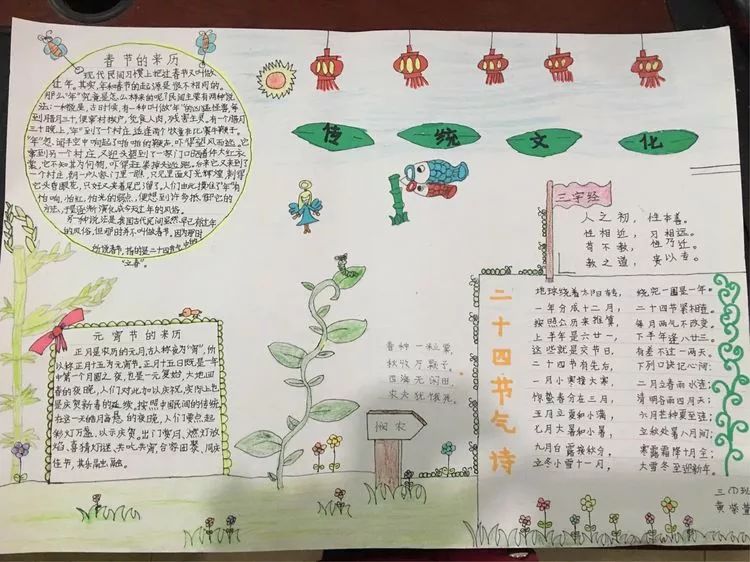 传统文化
春节的来历
现代民间习惯上把过春节又叫做
过年。其实,年和春节的起源是很不相同的。
那么"年"究竟是怎么样来的呢?民间主要有两种说
法:一种说是,古时候,有一种叫做"年"的凶猛怪兽,每
到腊月三十,便窜村挨户,觅食人肉,残害生灵。有一个腊月
三十晚上,"年"到了一个村庄,适逢两个牧童在比赛牛鞭子。
"年"忽闻半空中响起了啪啪的鞭声,吓得望风而逃。它
窜到另一个村庄,又迎头望到了一家门口晒着件大红衣
裳,它不知其为何物,吓得赶紧掉头逃跑。后来它又来到了
一个村庄,朝一户人家门里一瞧,只见里面灯火辉煌,刺得
它头昏眼花,只好又夹着尾巴溜了。人们由此摸准了"年"有
怕响,怕红,怕光的弱点,便想到许多抵御它的
方法,于是逐渐演化成今天过年的风俗。
另一种说法是我国古代民间虽然早已有过年
的风俗,但那时并不叫做春节。因为那时
所说春节,指的是二十四节气中的
"立春"。
元宵节的来历
正月是农历的元月,古人称夜为"宵",所
以称正月十五为元宵节。正月十五日既是一年
中第一个月圆之夜,也是一元复始,大地回
春的夜晚,人们对此加以庆祝,实际上也
是庆贺新春的延续。按照中国民间的传统,
在这一天的夜晚,人们要点起
彩灯万盏,以示庆贺。出门赏月、燃灯放
焰、喜猜灯谜、共吃元宵,合家团聚、同庆
佳节,其乐融融。
春种一粒粟,
秋收万颗子。
四海无闲田,
农夫犹饿死。
悯农
三字经
人之初,性本善。
性相近,习相远。
苟不教,性乃迁。
教之道,贵以专。
二十四节气诗
地球绕着太阳转,绕完一圈是一年。
一年分成十二月,二十四节紧相连。
按照公历来推算,每月两气不改变。
上半年是六廿一,下半年逢八廿三。
这些就是交节日,有差不过一两天。
二十四节有先后,下列口诀记心间:
一月小寒接大寒,二月立春雨水连;
惊蛰春分在三月,清明谷雨四月天;
五月立夏和小满,六月芒种夏至连;
七月大暑和小暑,立秋处暑八月间;
九月白露接秋分,寒露霜降十月全;
立冬小雪十一月,大雪冬至迎新年。
三(1)班